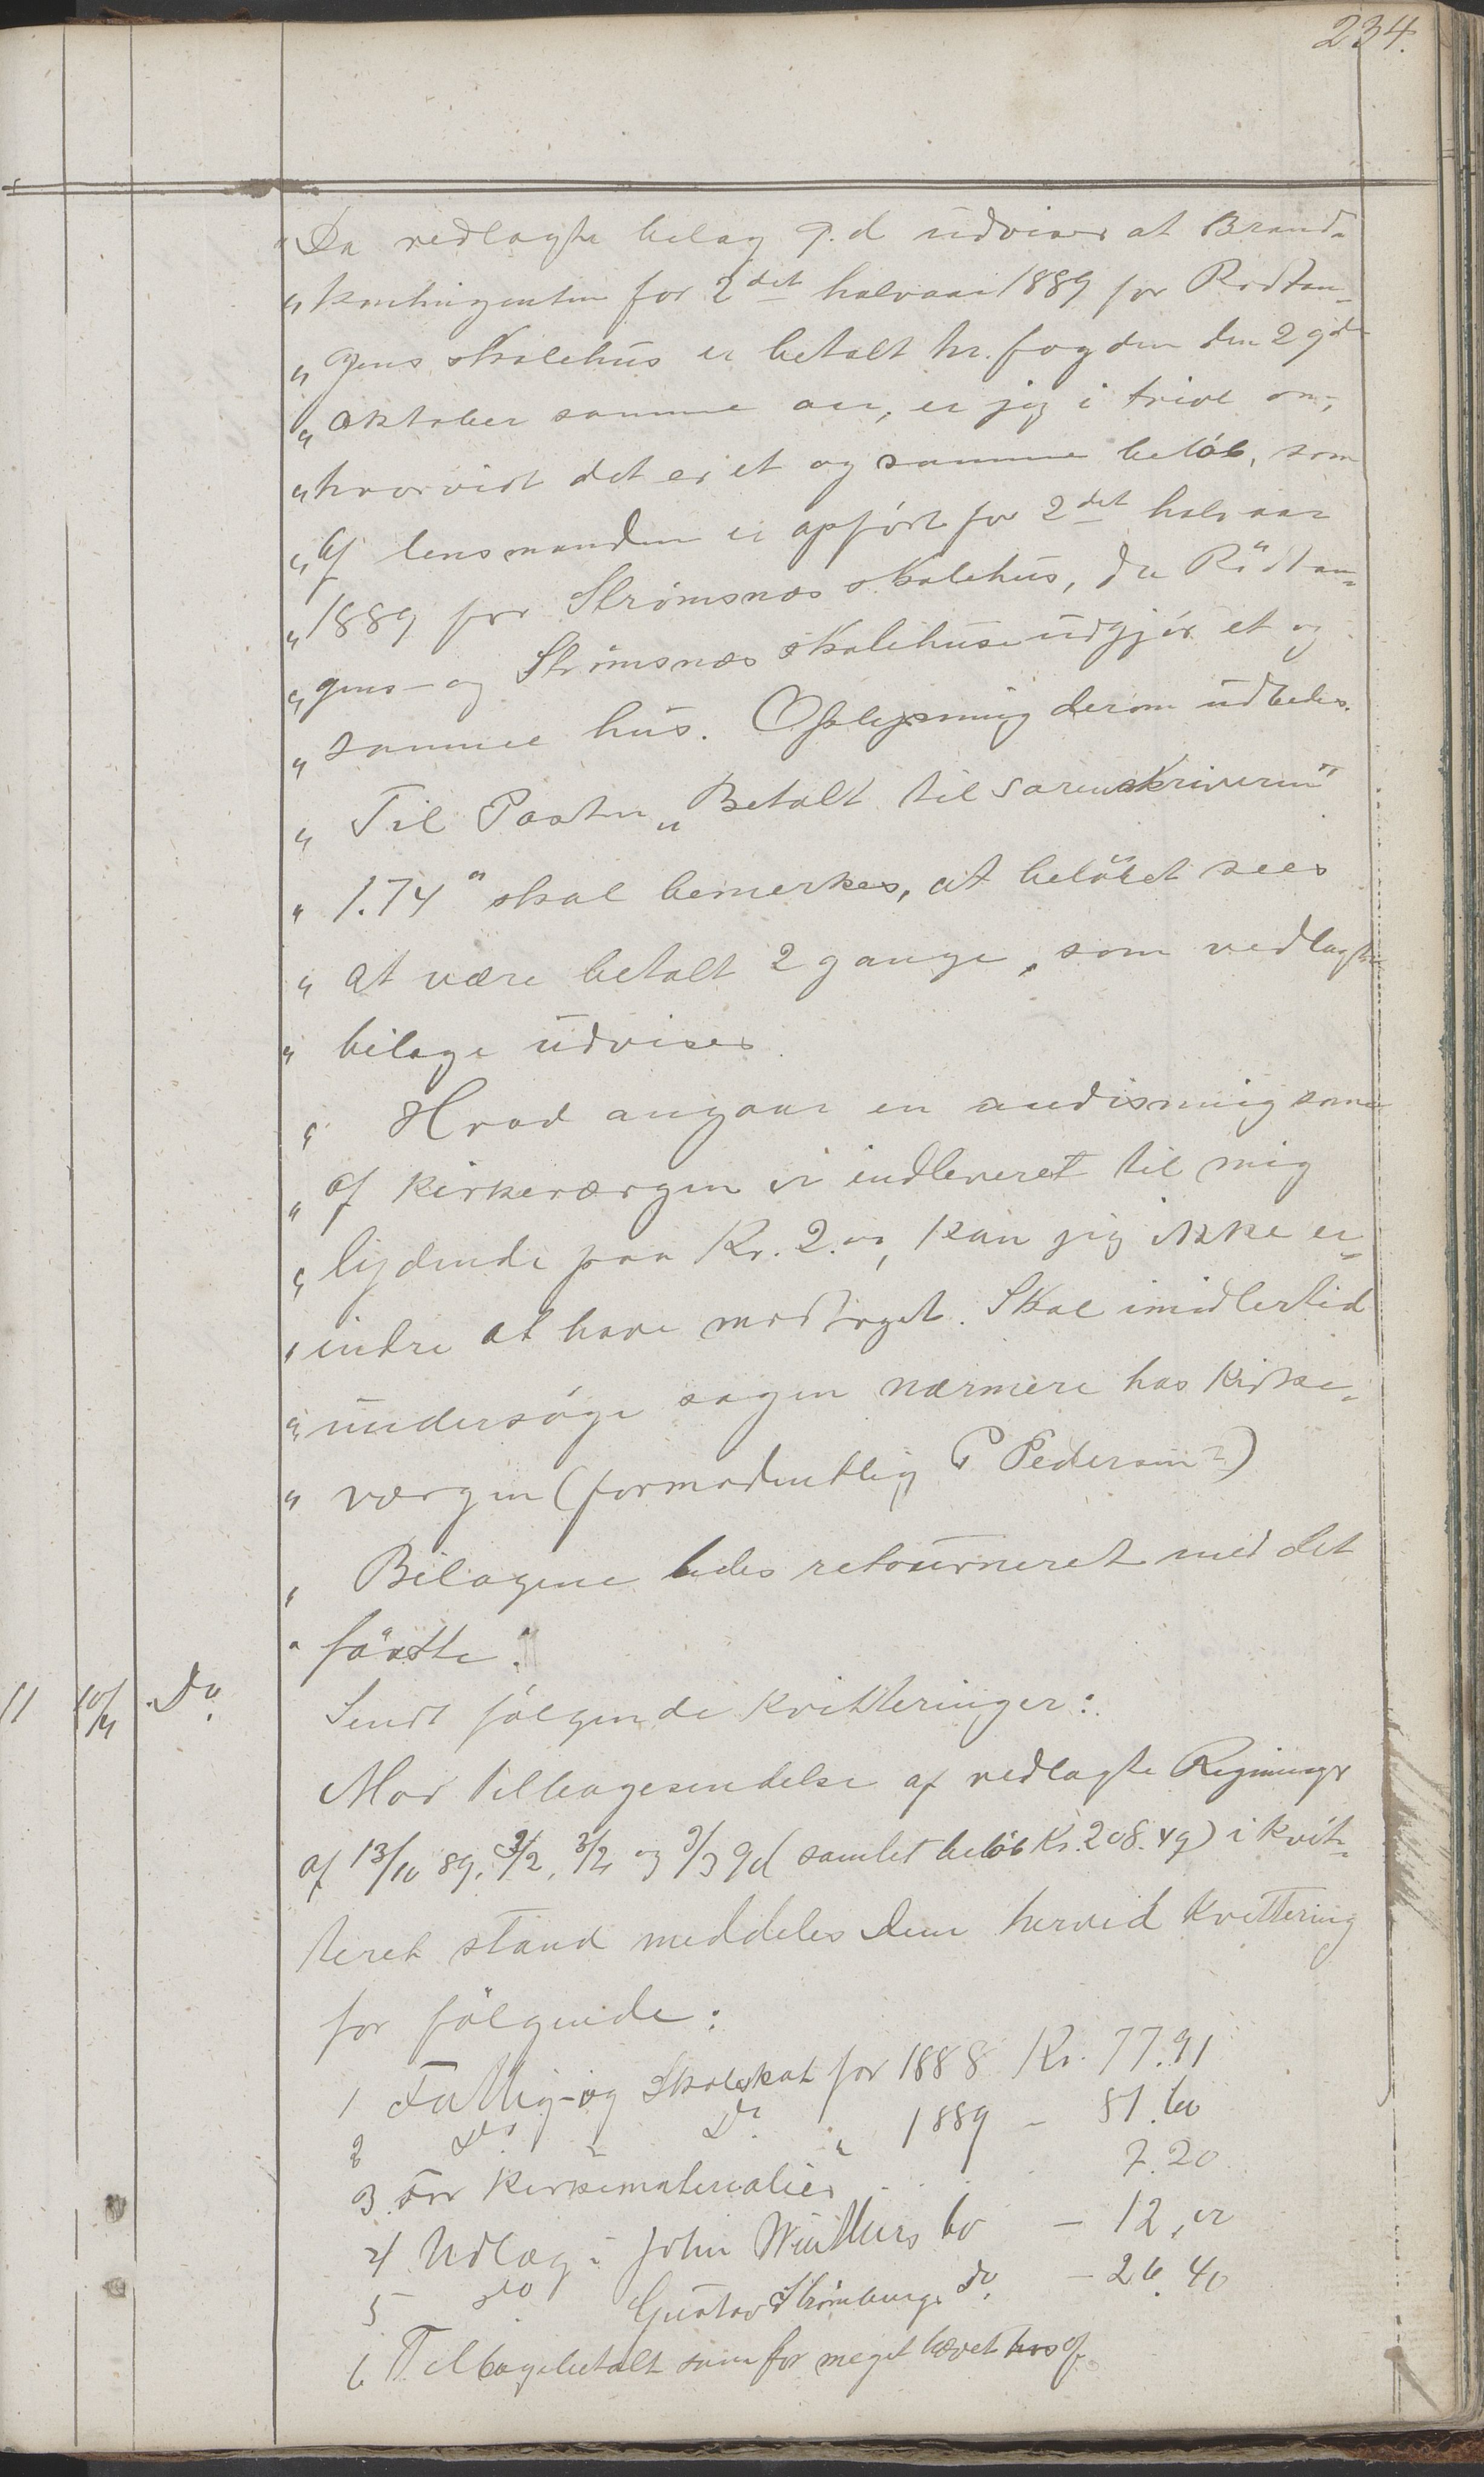 234.
"Da vedlagte bilag 9.d udviser at Brand-
" kontingenten for 2det halvaar 1889 for Rødtan-
" gens skolehus er betalt hr. fogden den 29de
" oktober samme aar, er jeg i tvivl om,
" hvorvidt det er et og samme beløb, som
" af lensmanden er opført for 2det halvaar
" 1889 for Strømsnæs skolehus, da Rødtan-
" gens- og Strømsnæs skolehuse udgjør et og
" samme hus. Oplysning derom udbedes.
" Til Posten „Betalt til sorenskriveren"
" 1.74" skal bemerkes, at beløbet sees
" at være betalt 2 gange, som vedlagte
" bilage udviser
" Hvad angaar en anvisning som
" af kirkeværgen er indleveret til mig
" lydende paa Kr. 2.00, kan jeg ikke er-
" indre at have modtaget. Skal imidlertid
" undersøge sagen nærmere hos kirke-
" værgen (formodentlig P Pedersen?)
" Bilagene bedes retourneret med det
" første."
11 10/4 Do. Sendt følgende kvitteringer:
Mod tilbagesendelse af vedlagte Regninger
af 13/10 89, 3/2, 3/2 og 3/3 9d (samlet beløb Kr. 208.49) i kvit-
teret stand meddeles Dem herved kvittering
for følgende:
1 Fattig- og Skoleskat for 1888 Kr. 77.91
2 Do. - Do. " 1889 - 81.60
3 For kirkematerialier 7.20
4 Udlæg i John Winthers bo - 12,00
5 Do Gustav Strømbergs do. - 26.40
6 Tilbagebetalt som for meget hævet hos af